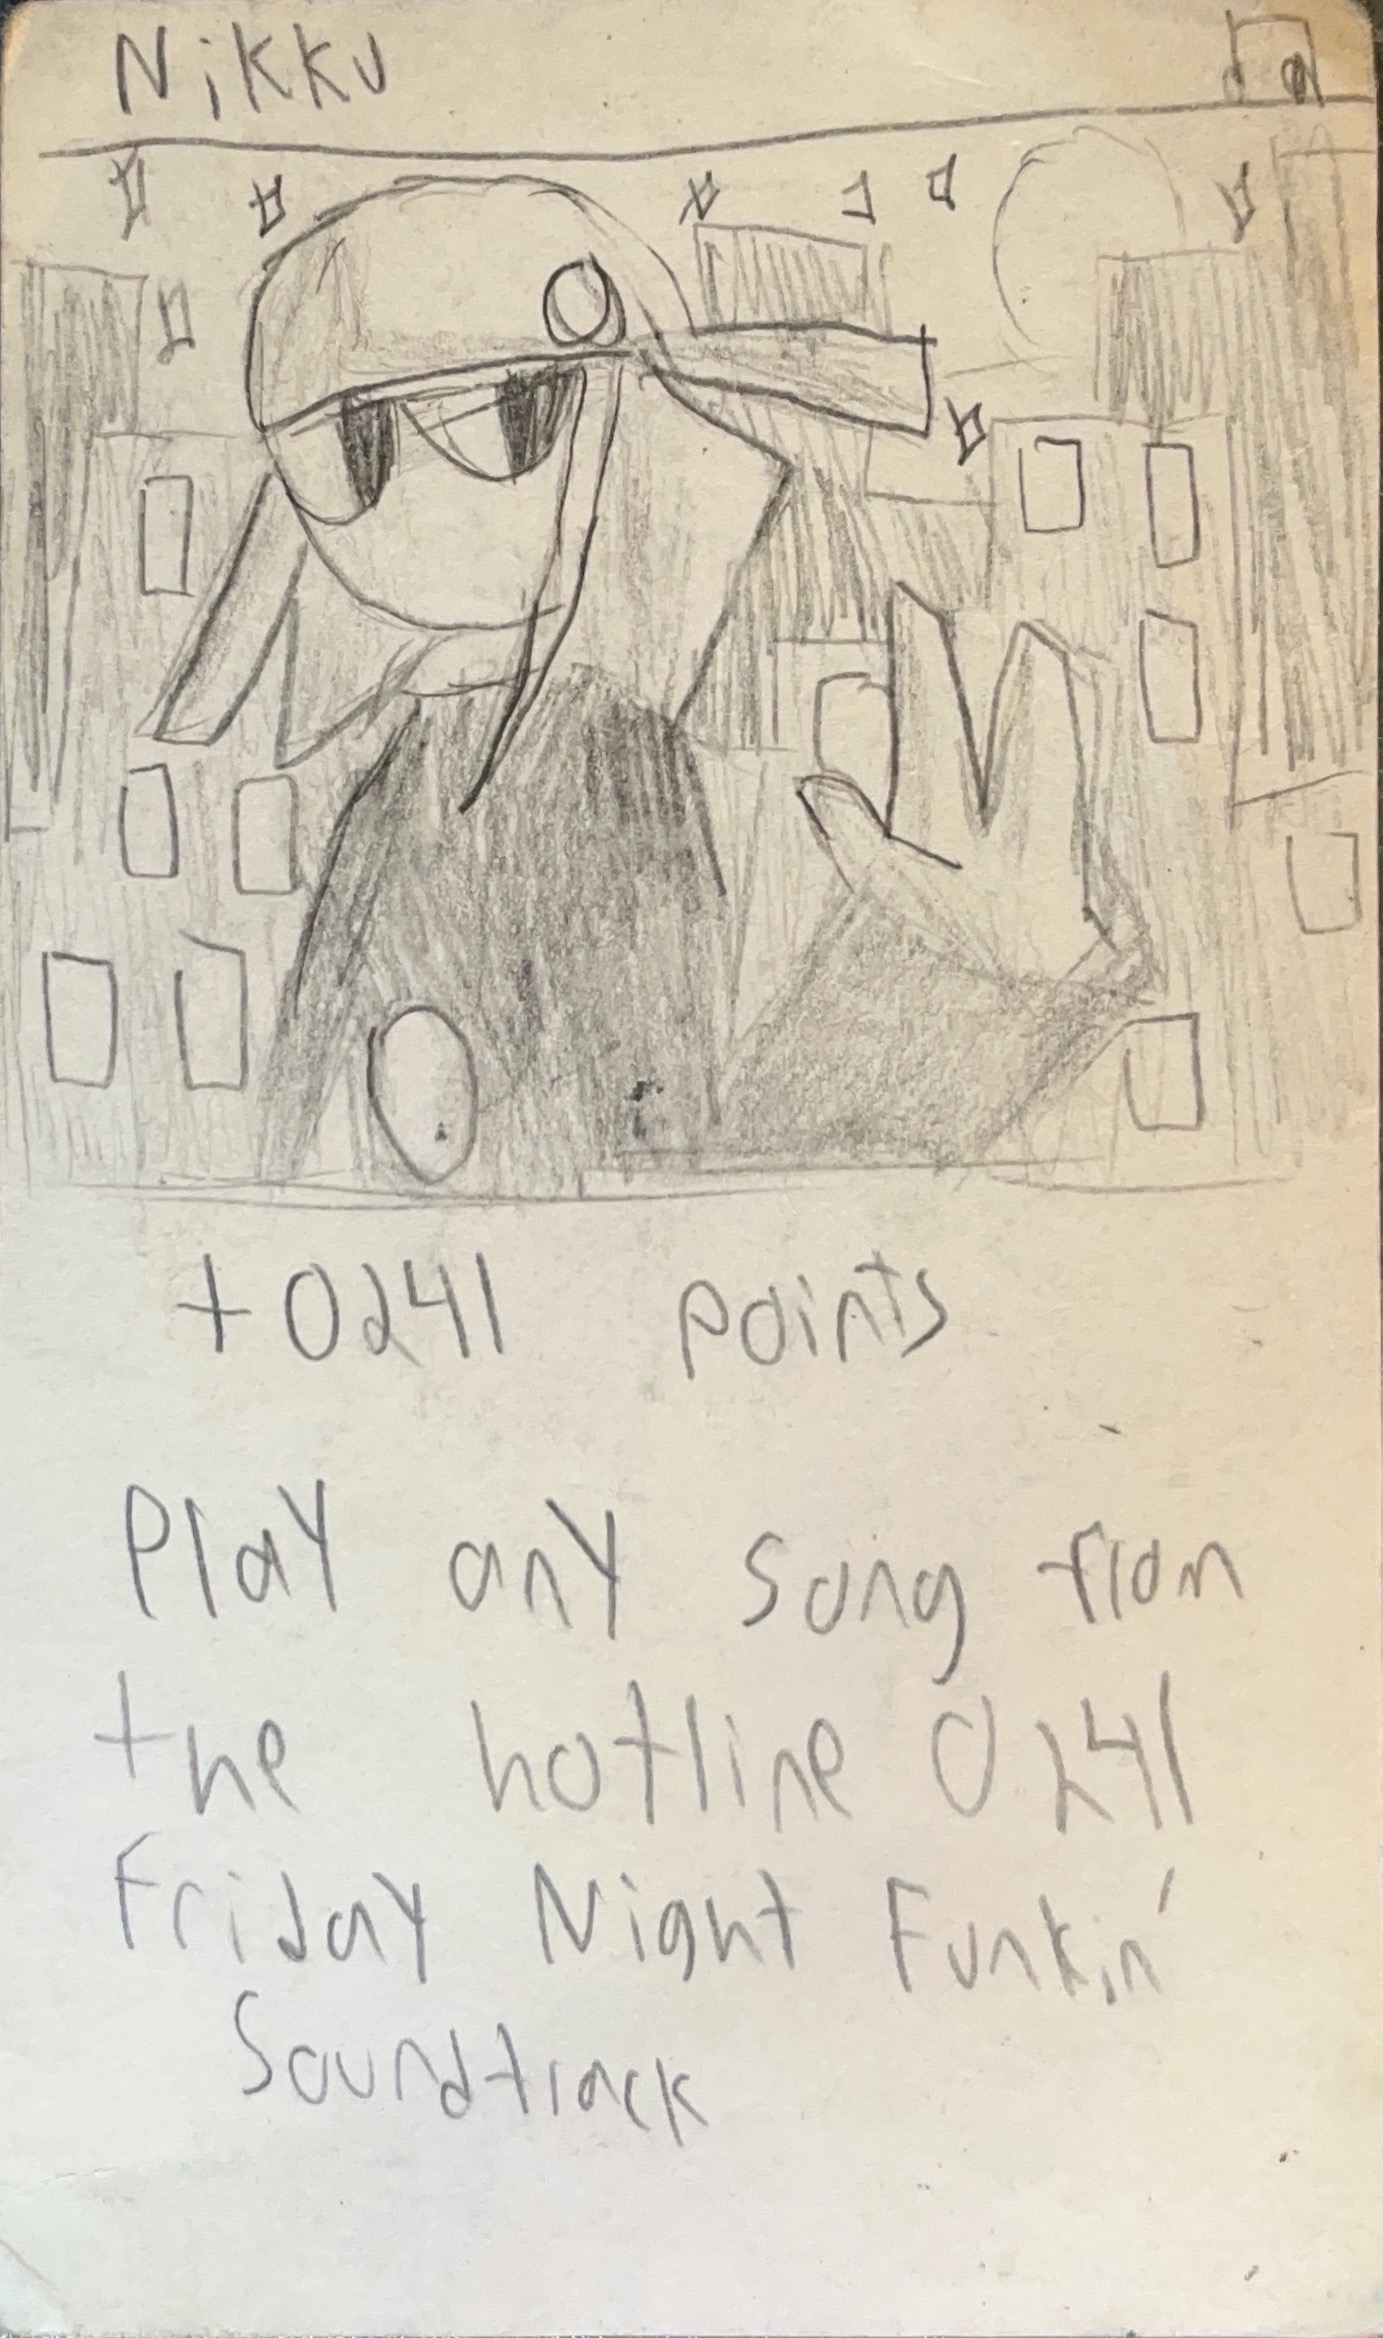 Nikku
+0241 points
Play any song from
the hotline 0241
Friday Night Funkin'
Soundtrack